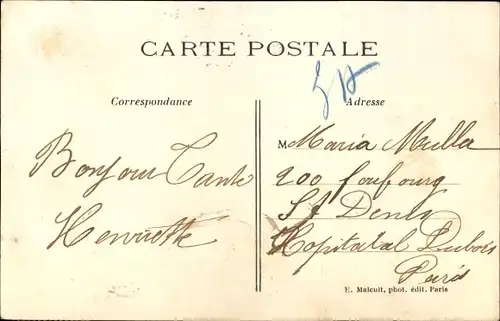 CARTE POSTALE
Correspondance
Adresse
Bonjour Tante
Henriette
M Maria Mulla
200 foubourg
St Denis
Hopitatal Dubois
Paris
E. Malcuit, phot. édit. Paris